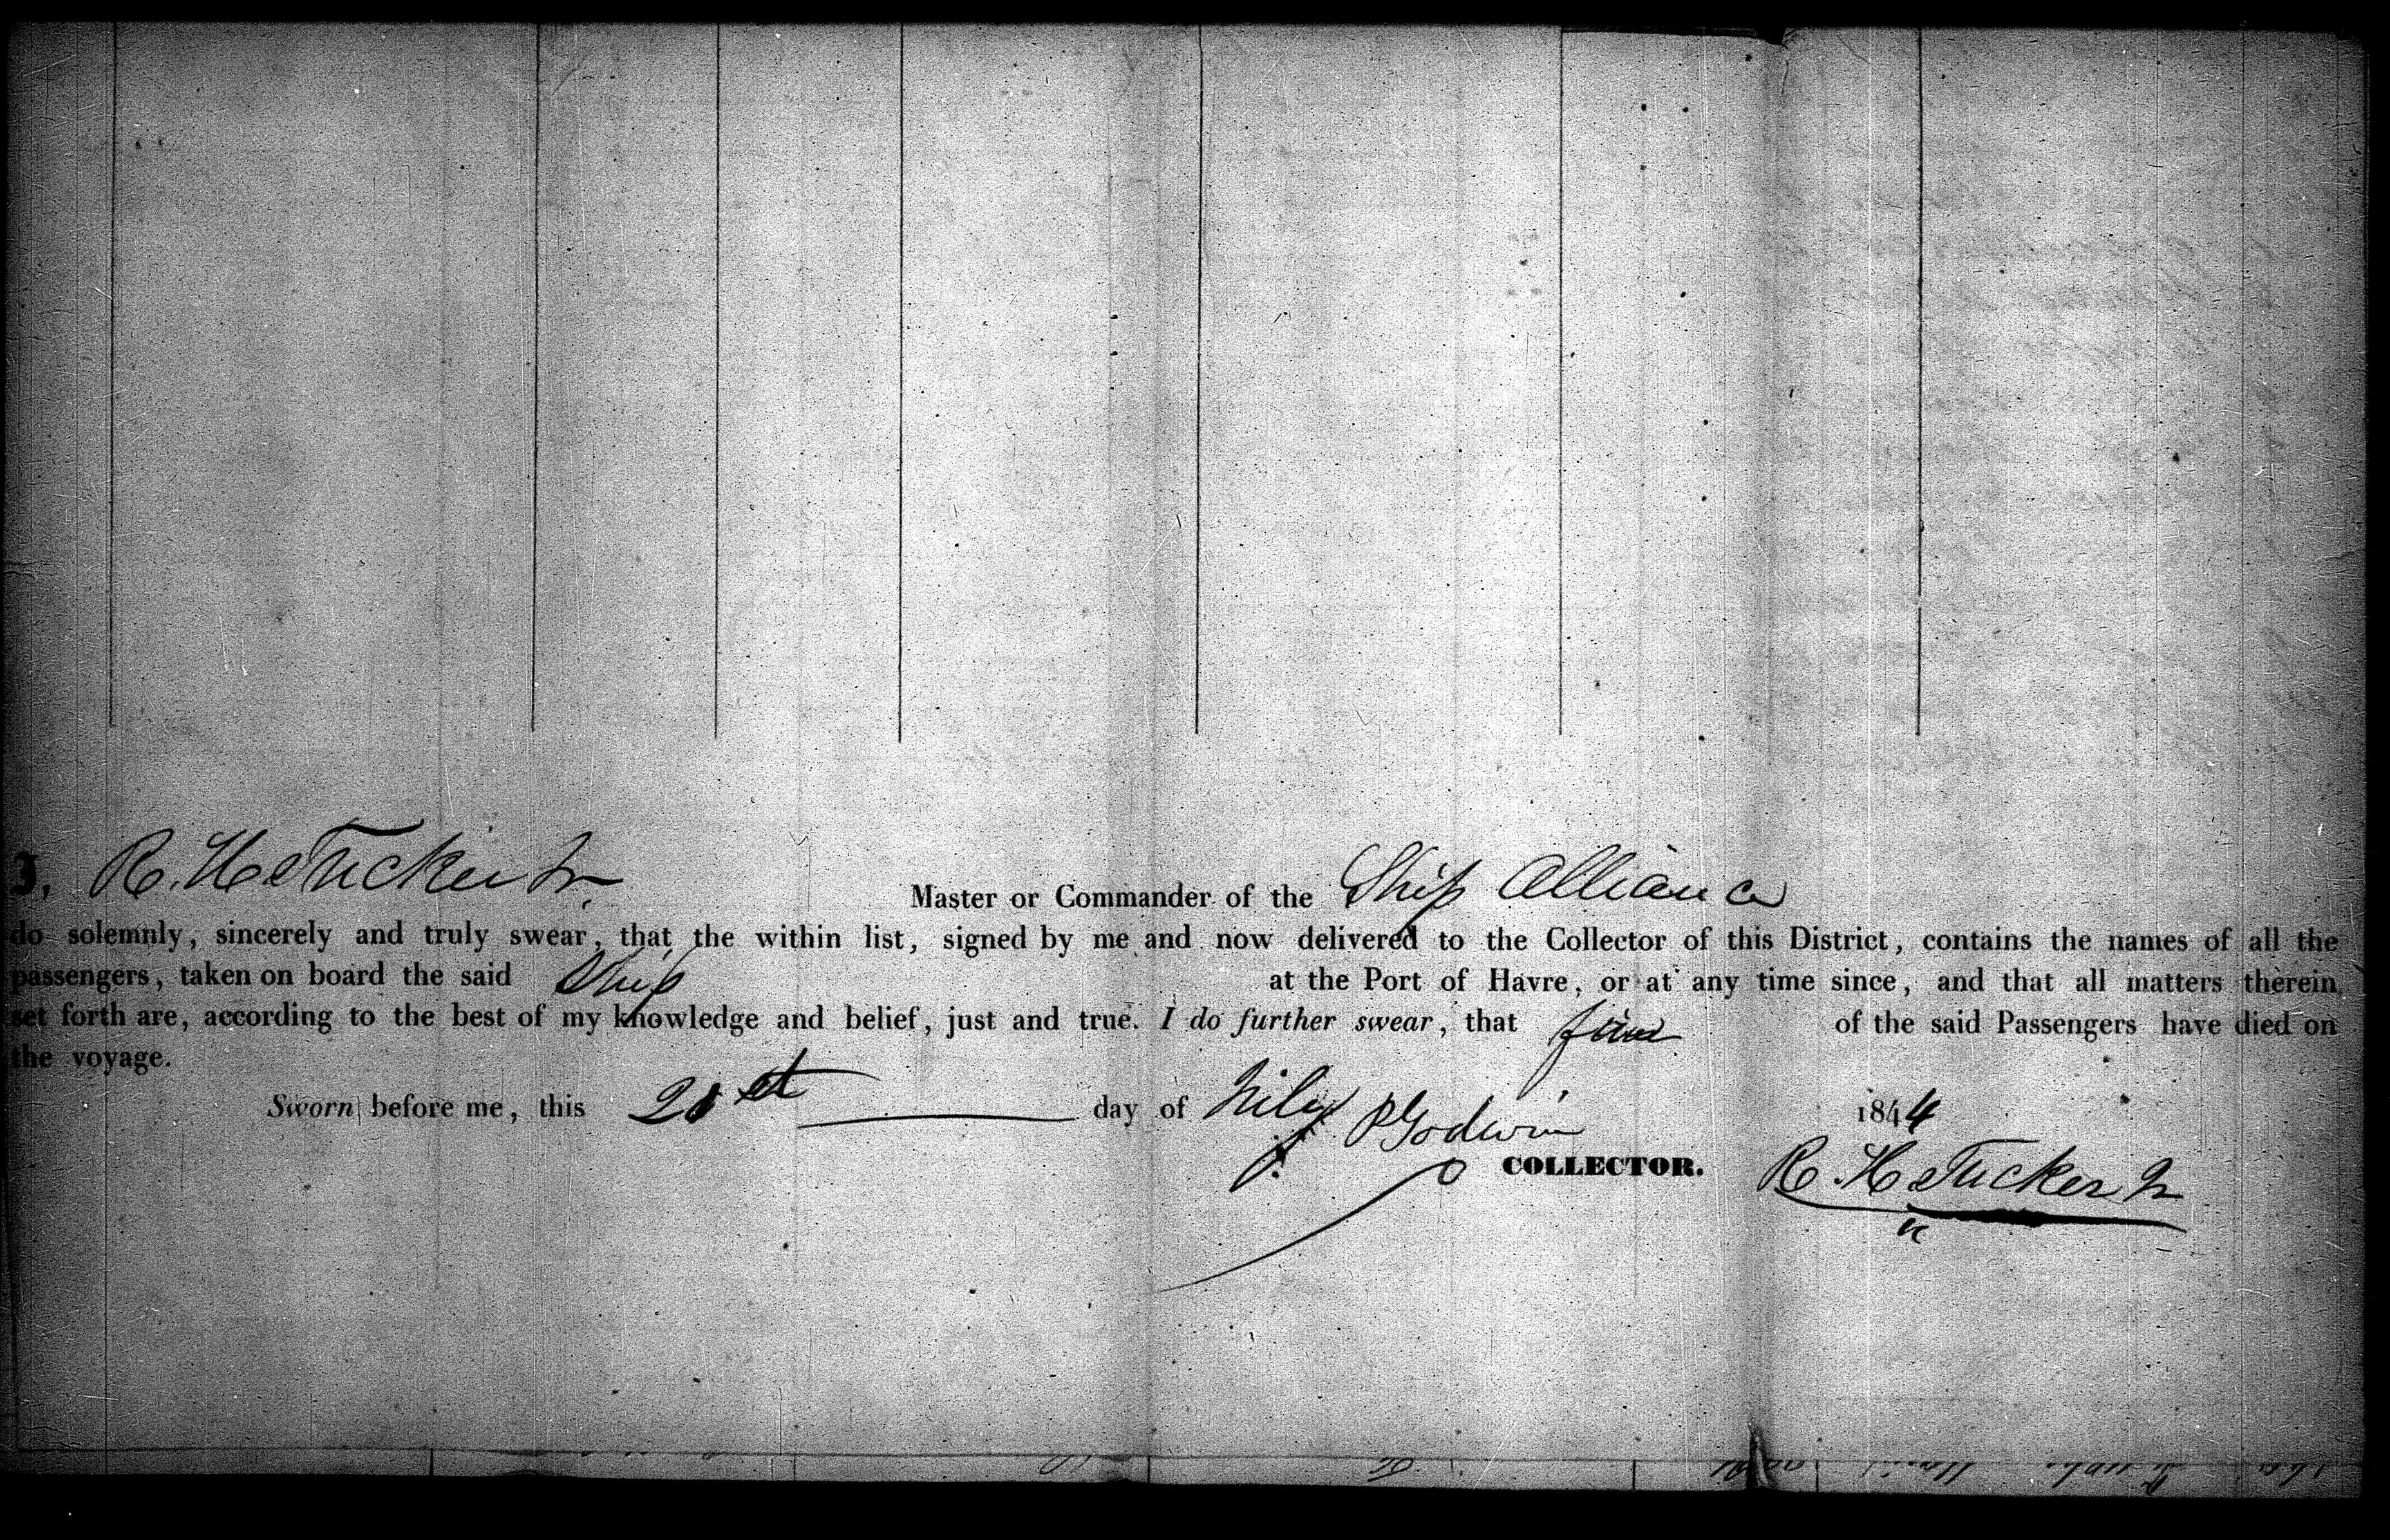 I, R. H. Tucker Jr. Master or Commander of the Ship Alliance
do solemnly, sincerely and truly swear, that the within list, signed by me and now delivered to the Collector of this District, contains the names of all the
passengers, taken on board the said Ship at the Port of Havre, or at any time since, and that all matters therein
set forth are, according to the best of my knowledge and belief, just and true. I do further swear, that of the said Passengers have died on
the voyage.
Sworn before me, this 21st day of 1844
P Godwin
COLLECTOR.
R. H. Tucker Jr